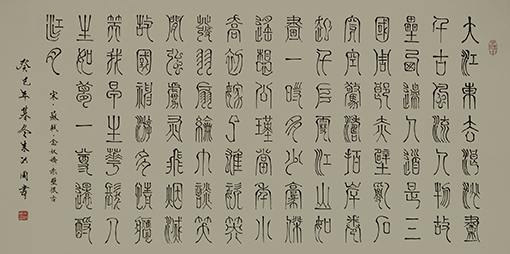 大江東去浪淘盡
千古風流人物故
壘西邊人道是三
國周郎赤壁亂石
穿空驚濤拍岸捲
起千堆雪江山如
畫一時多少豪傑
遙想公瑾當年小
喬初嫁了雄姿英
發羽扇綸巾談笑
間強虜灰飛煙滅
故國神遊多情應
笑我早生華髮人
生如夢一尊還酹
江月
宋·蘇軾·念奴嬌·赤壁懷古
癸巳年暮冬